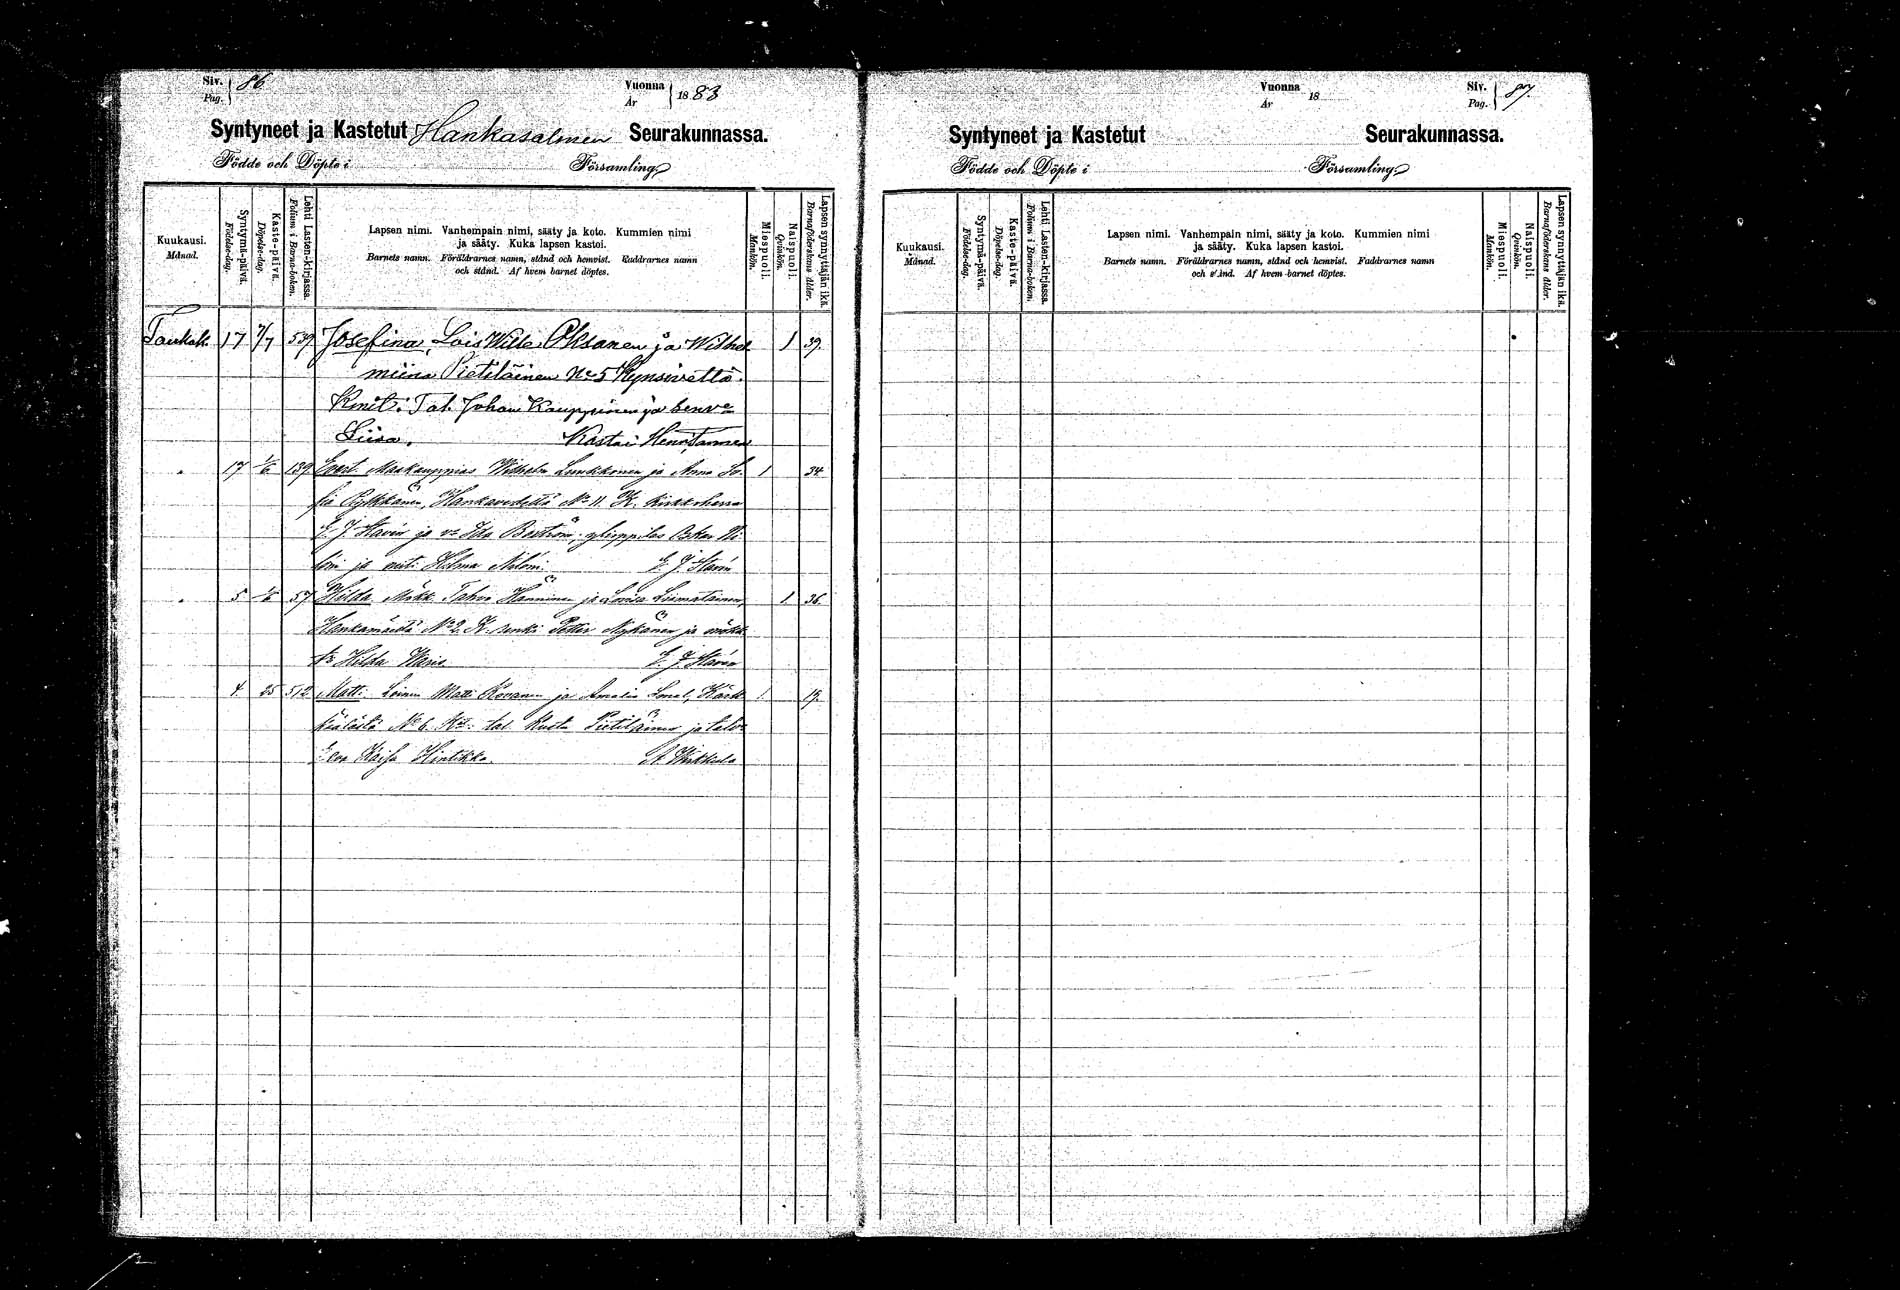 Siv. 86.
Pag.
Vuonna 1883
År
Syntyneet ja Kastetut Hankasalmen Seurakunnassa.
Födde och Döpte i Församling
Kuukausi.
Månad.
Syntymä-päivä.
Födelse-dag.
Kaste-päivä.
Döpelse-dag.
Lehti Lasten-kirjassa.
Folium i Barna-boken.
Lapsen nimi. Vanhempain nimi, sääty ja koto. Kummien nimi
ja sääty. Kuka lapsen kastoi.
Barnets namn. Föräldrarnes namn, stånd och hemvist. Faddrarnes namn
och stånd. Af hvem barnet döptes.
Miespuoli.
Mankön.
Naispuoli.
Qvinkön.
Lapsen synnyttäjän ikä.
Barnaföderskans ålder.
Toukok. 17 7/7 539 Josefina, Lois Wille Oksanen ja Wilhel 1 39.
miina Pietiläinen No 5 Kynsivettä.
Kmit: Tal. Johan Kauppinen ja
Liisa. Kastai
17 139 Maakauppias Wilhelm Lunkkonen ja Anna So 1 34.
fia Pylkkänen, Hankavedeltä No 11. K. kirkkoherra
E. J. Stavén ja Ida Boström, ylioppilas
ja neiti Helma E. J. Stavén
5 57 Hilda Mökk. Tahvo Hänninen ja Lovisa Liimatainen, 1. 36.
Hankamäeltä No 2. K. renki Petter Nykänen ja mökk.
Hilda E. J. Stavén
4. 25 512 Matti Loinen Matti Kovanen ja Amalia 1 19.
No 6. tal. Kusta Pietiläinen ja
Eva Kaisa Hintikka. A.
Vuonna 18
År
Siv. 87.
Pag.
Syntyneet ja Kastetut Seurakunnassa.
Födde och Döpte i Församling
Kuukausi.
Månad.
Syntymä-päivä.
Födelse-dag.
Kaste-päivä.
Döpelse-dag.
Lehti Lasten-kirjassa.
Folium i Barna-boken.
Lapsen nimi. Vanhempain nimi, sääty ja koto. Kummien nimi
ja sääty. Kuka lapsen kastoi.
Barnets namn. Föräldrarnes namn, stånd och hemvist. Faddrarnes namn
och stånd. Af hvem barnet döptes.
Miespuoli.
Mankön.
Naispuoli.
Qvinkön.
Lapsen synnyttäjän ikä.
Barnaföderskans ålder.